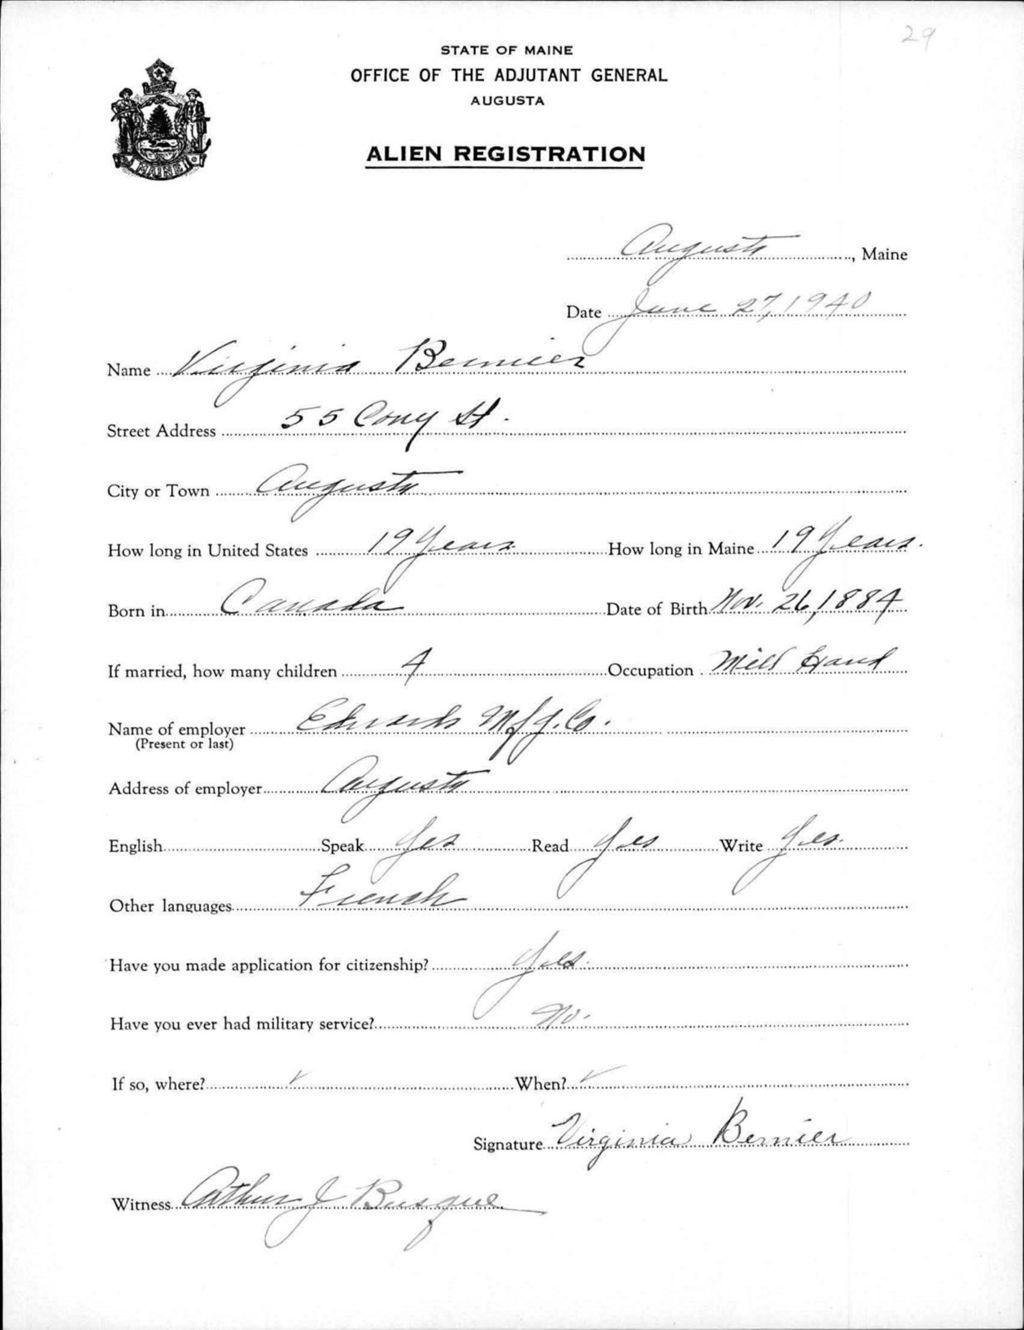 29
STATE OF MAINE
OFFICE OF THE ADJUTANT GENERAL
AUGUSTA
MAINE
ALIEN REGISTRATION
Augusta, Maine
Date June 27, 1940
Name Virginia Bernier
Street Address 55 Cony St.
City or Town Augusta
How long in United States 19 Years How long in Maine 19 Years.
Born in Canada Date of Birth Nov. 26, 1884
If married, how many children 4 Occupation Mill Hand
Name of employer Edwards Mfg. Co.
(Present or last)
Address of employer Augusta
English Speak Yes Read Yes Write Yes.
Other languages French
Have you made application for citizenship? Yes.
Have you ever had military service? No.
If so, where? ✓ When? ✓
Signature Virginia Bernier
Witness Arthur J Busque